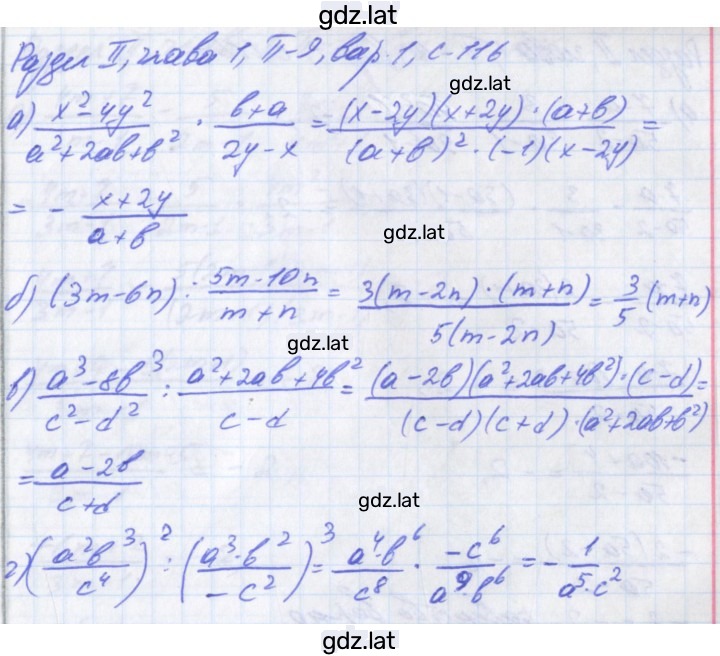 gdz.lat
Раздел II, глава 1, П-9, вар. 1, с-116
gdz.lat
а) \frac{x^2-4y^2}{a^2+2ab+b^2} \cdot \frac{b+a}{2y-x} = \frac{(x-2y)(x+2y)\cdot(a+b)}{(a+b)^2\cdot(-1)(x-2y)} =
= -\frac{x+2y}{a+b}
gdz.lat
б) (3m-6n) : \frac{5m-10n}{m+n} = \frac{3(m-2n)\cdot(m+n)}{5(m-2n)} = \frac{3}{5}(m+n)
gdz.lat
в) \frac{a^3-8b^3}{c^2-d^2} : \frac{a^2+2ab+4b^2}{c-d} = \frac{(a-2b)(a^2+2ab+4b^2)\cdot(c-d)}{(c-d)(c+d)\cdot(a^2+2ab+b^2)} =
= \frac{a-2b}{c+d}
gdz.lat
г) \left(\frac{a^2b^3}{c^4}\right)^2 : \left(\frac{a^3\cdot b^2}{-c^2}\right)^3 = \frac{a^4\cdot b^6}{c^8} \cdot \frac{-c^6}{a^9\cdot b^6} = -\frac{1}{a^5\cdot c^2}
gdz.lat